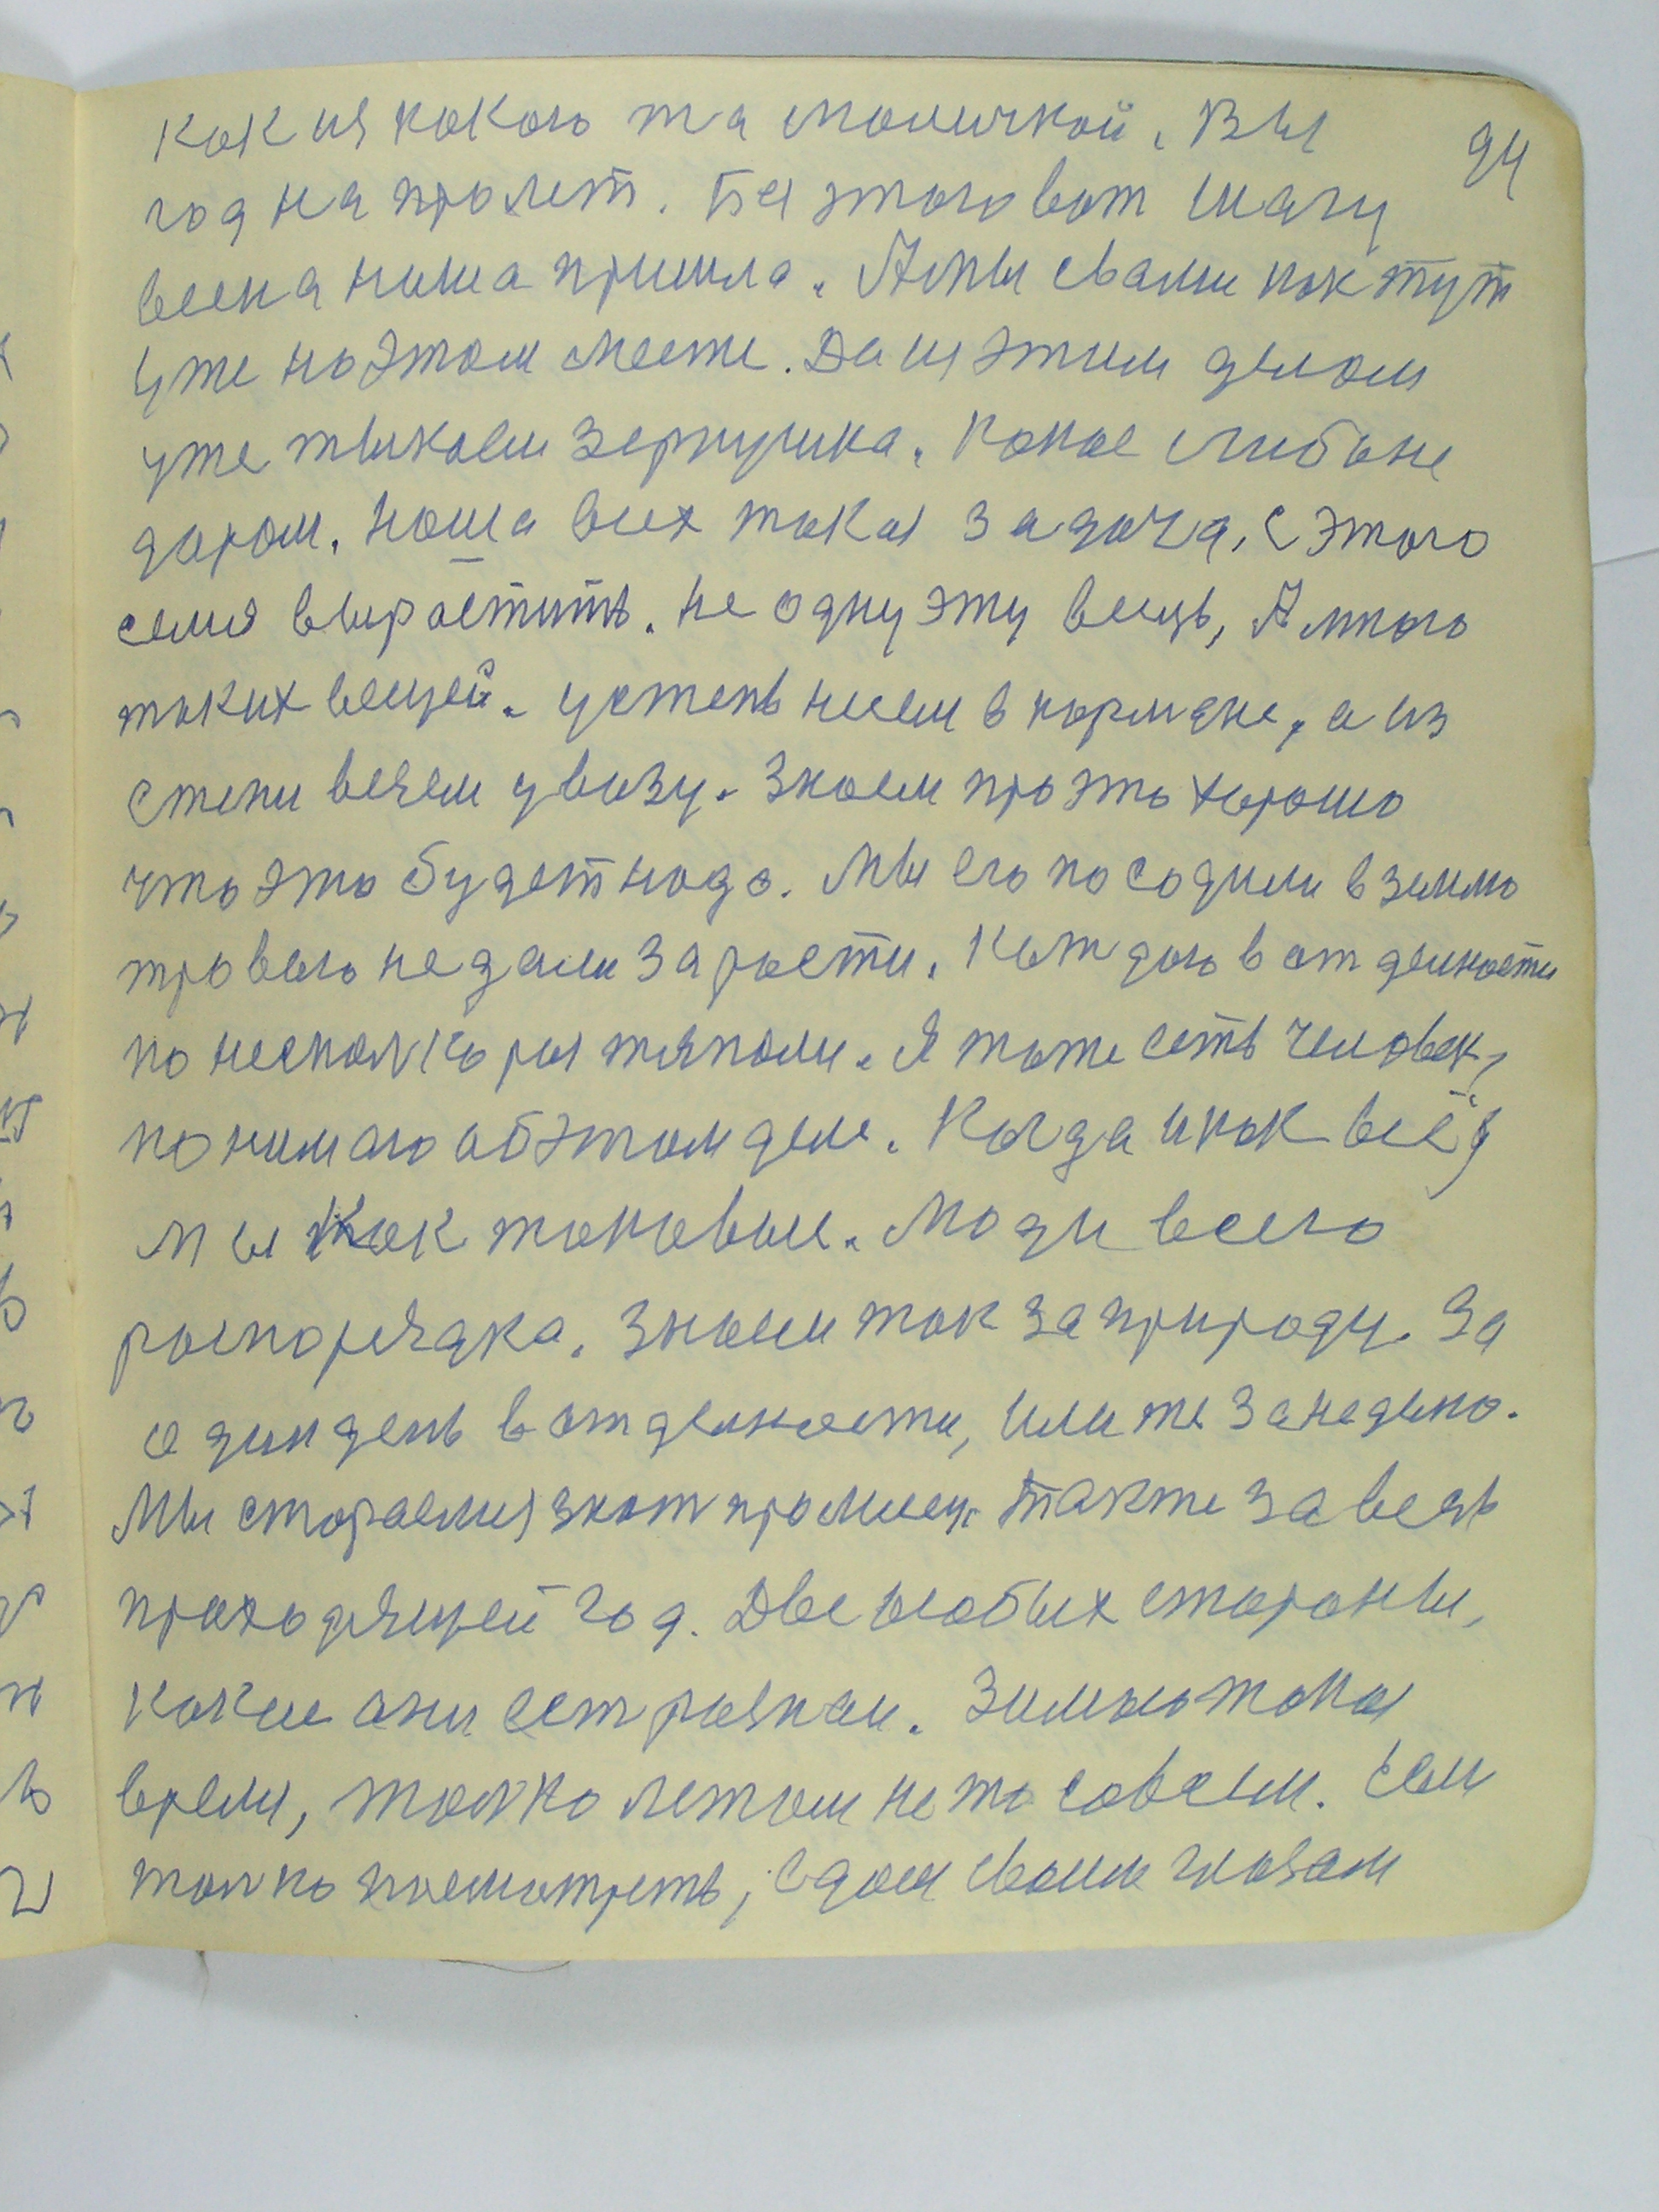 94
как из какою та маличкой. Вы
год на пролет. Без этого вот шагу
весна наша пришла. А мы свами как тут
уже на этом месте. Да из этим делом
уже тыкаем зернушка. Какое либо не
даром. Наша всех такая задача, с этого
семя вырастить. Не одну эту вещь, А много
таких вещей. устепь несем в кармане, а из
степи везем увозу. Знаем про это хорошо
что это будет надо. Мы его посодили в землю
траваю не дали зарасти. Каждою вотделности
по несколко раз тяпали. Я тоже есть человек,
понимаю об этом деле. Когда и как всё
мы как таковые. Люди всего
распорядка. Знаем так за природу. За
один день вотделности, или же за неделю.
Мы стараемся знат про месец. Также за весь
праходящей год. Две особых стораны,
какие ани ест разнаи. Зимою такая
время, толко летом не то совсем. Сам
толко посмотреть, с даей своими глазам